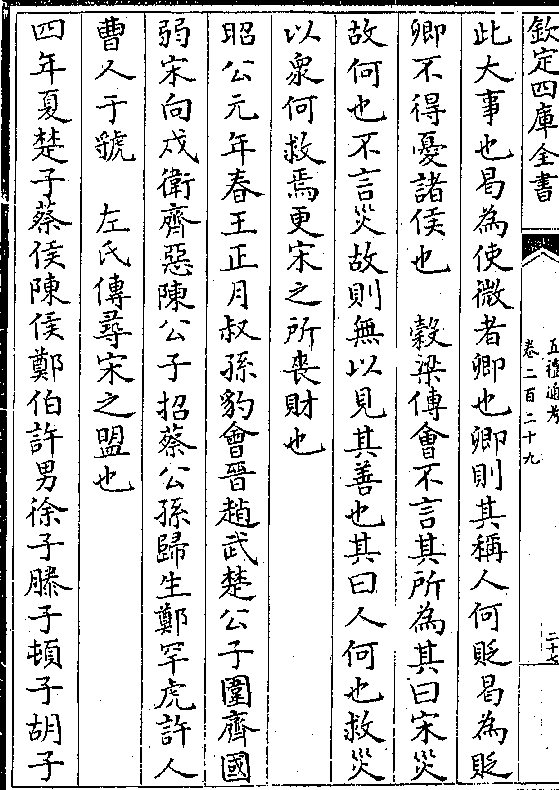 欽定四庫全書
五禮通考
卷二百二十九
二十七
此大事也曷為使微者卿也卿則其稱人何貶曷為貶
卿不得憂諸侯也　穀梁傳會不言其所為其曰宋災
故何也不言災故則無以見其善也其曰人何也救災
以衆何救焉更宋之所喪財也
昭公元年春王正月叔孫豹會晉趙武楚公子圍齊國
弱宋向戌衛齊惡陳公子招蔡公孫歸生鄭罕虎許人
曹人于虢　左氏傳尋宋之盟也
四年夏楚子蔡侯陳侯鄭伯許男徐子滕子頓子胡子